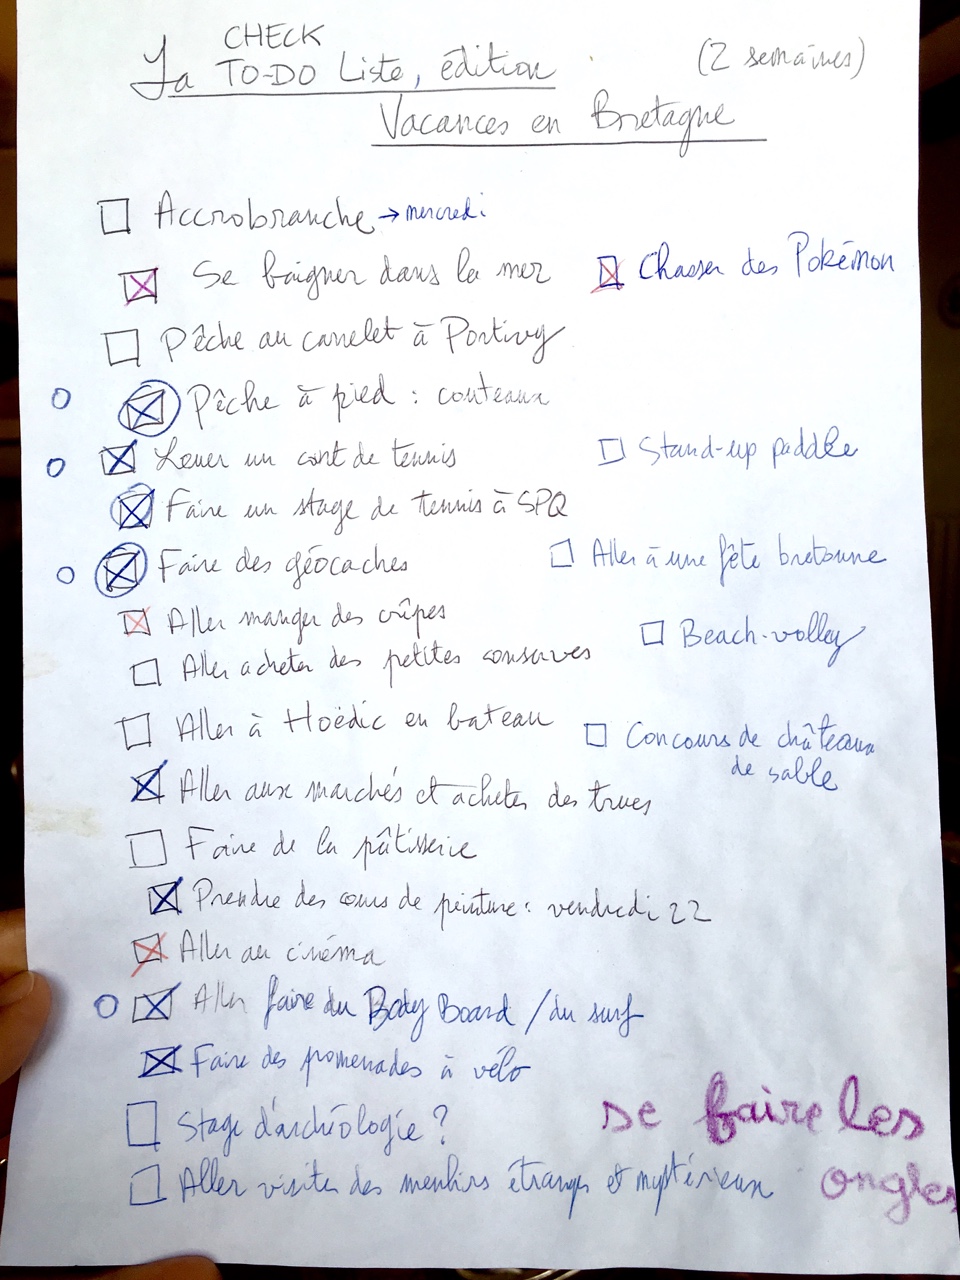 CHECK
La TO-DO Liste, édition (2 semaines)
Vacances en Bretagne
Accrobranche → mercredi
Se baigner dans la mer
Chasser des Pokémon
Pêche au carrelet à Portivy
Pêche à pied : couteaux
Louer un cort de tennis
Stand-up paddle
Faire un stage de tennis à SPQ
Faire des géocaches
Aller à une fête bretonne
Aller manger des crêpes
Beach-volley
Aller acheter des petites conserves
Aller à Hoëdic en bateau
Concours de châteaux
de sable
Aller aux marchés et acheter des trucs
Faire de la pâtisserie
Prendre des cours de peinture : vendredi 22
Aller au cinéma
Aller faire du Body Board / du surf
Faire des promenades à vélo
Stage d'archéologie ?
se faire les
ongles
Aller visiter des menhirs étranges et mystérieux